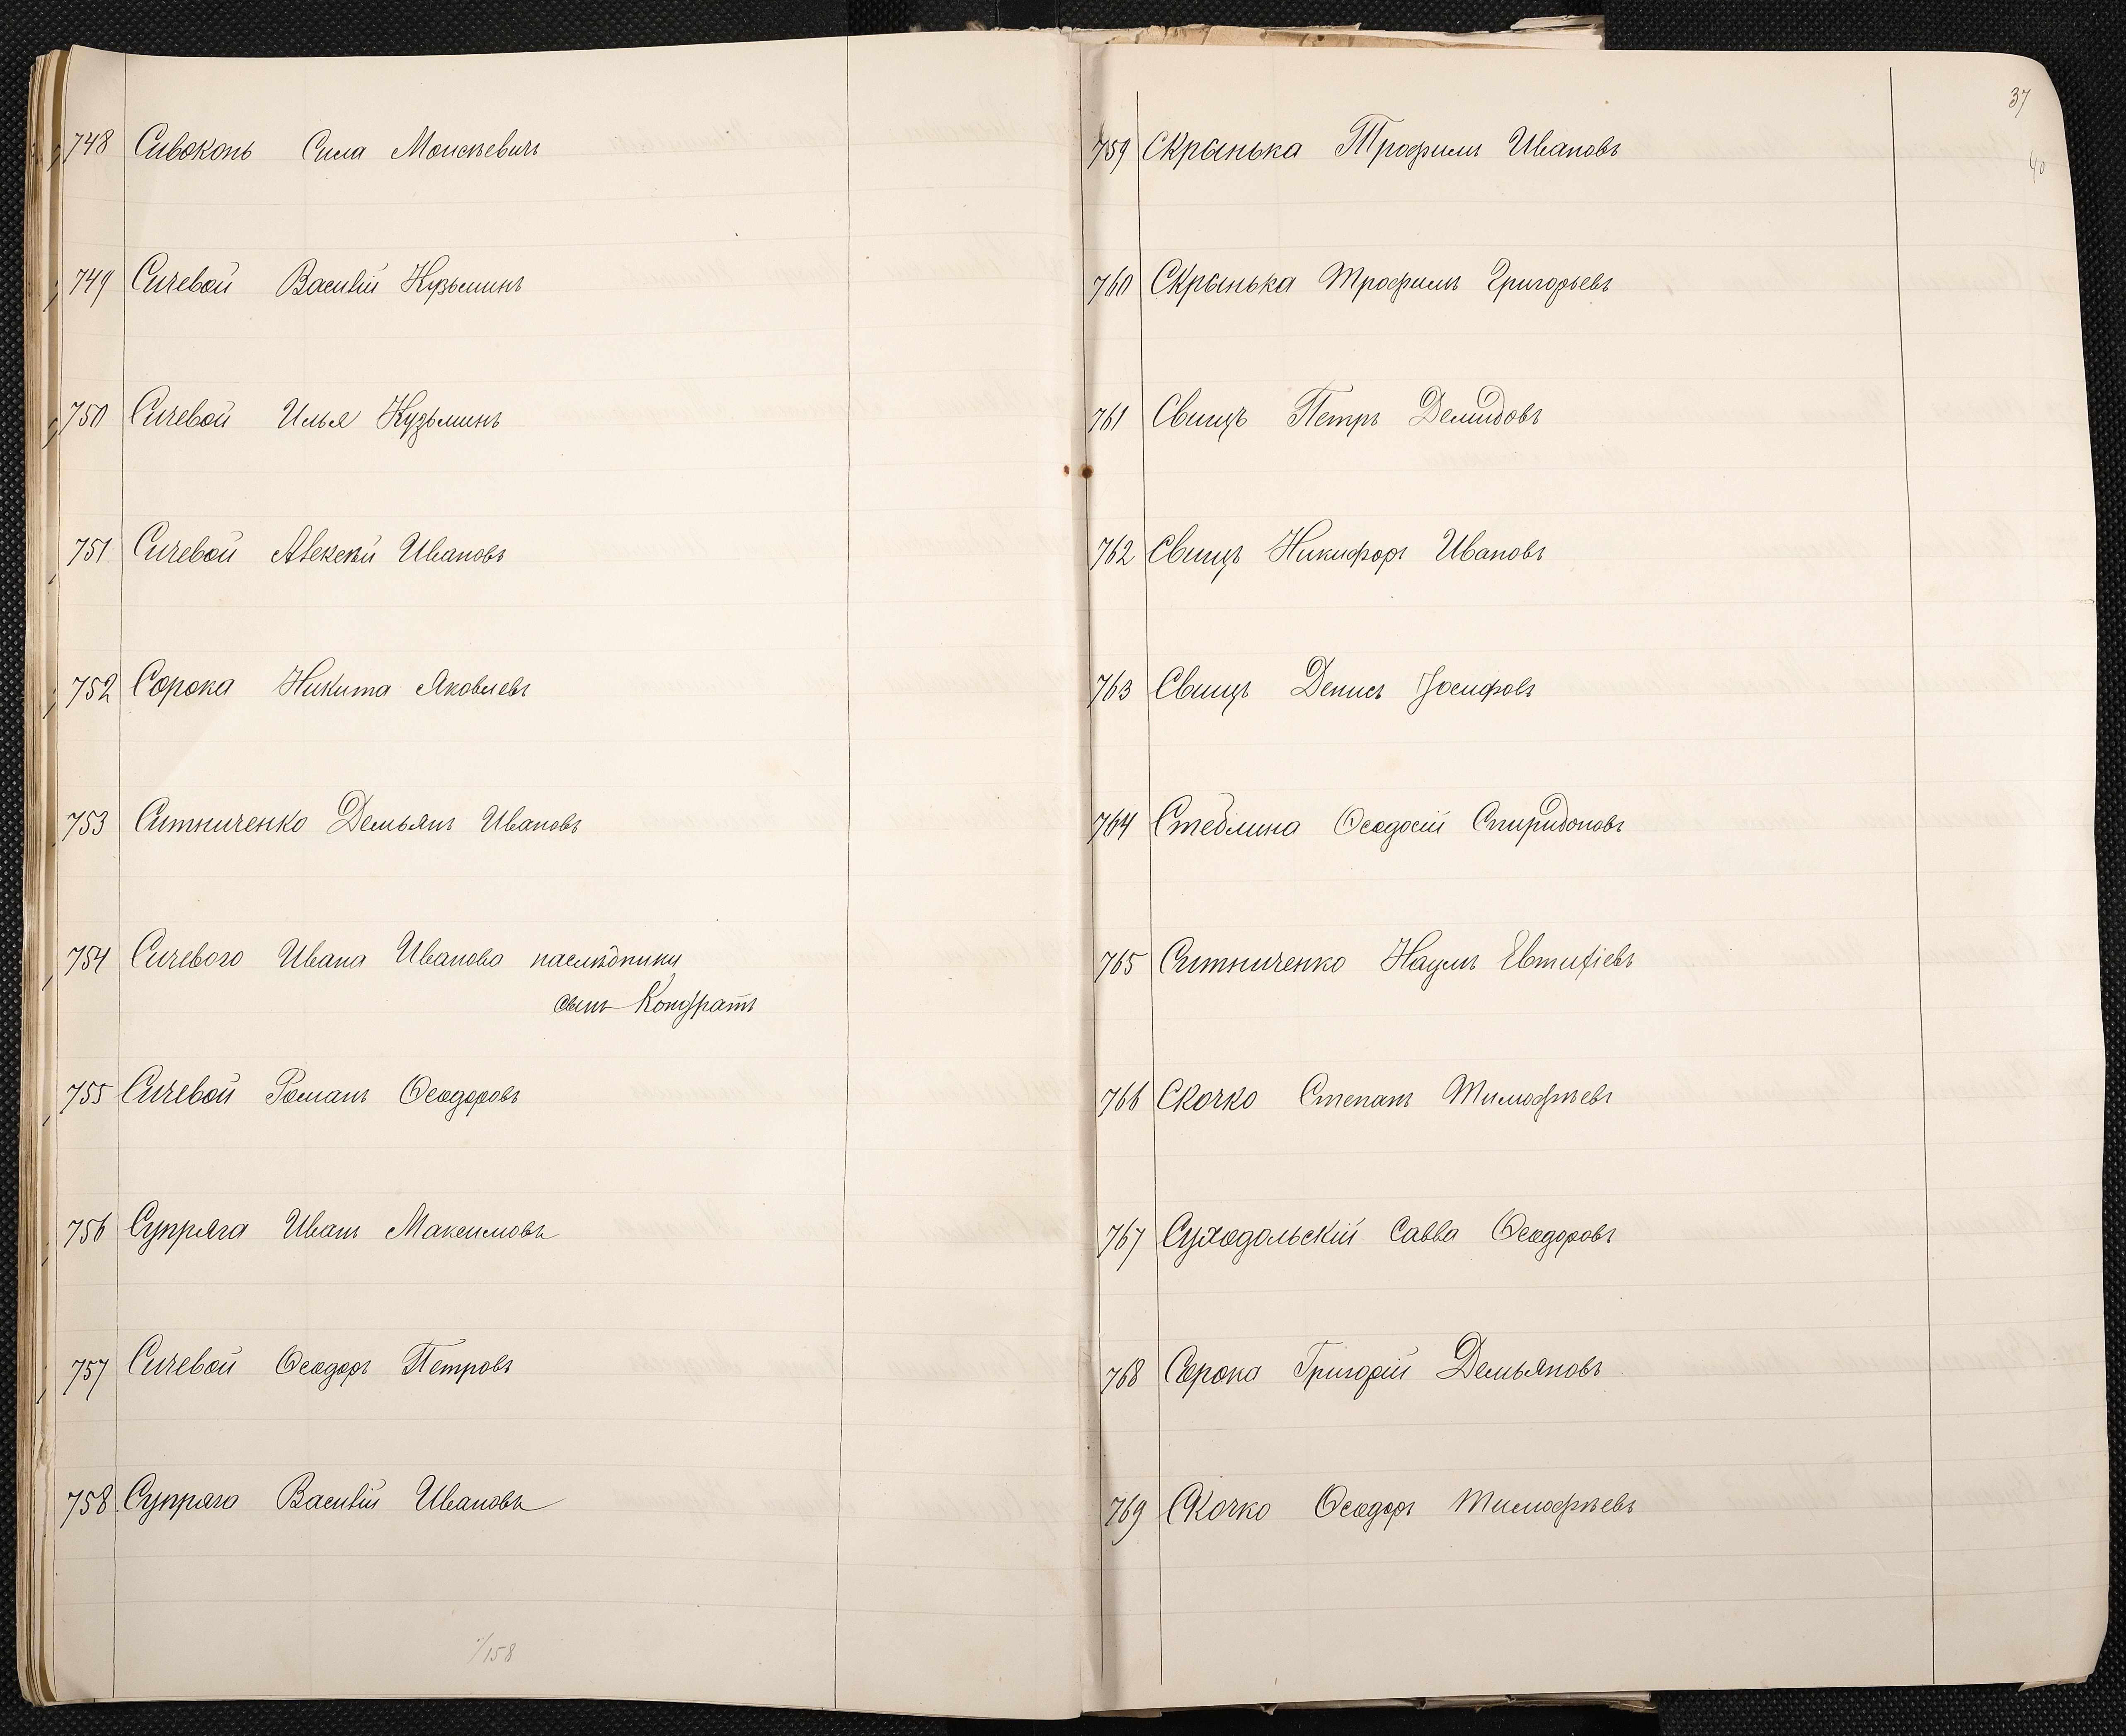 748 Сивоконь Сила Моисѣевичъ
749 Сичевой Василій Кузьминъ
750 Сичевой Илья Кузьминъ
751 Сичевой Алексѣй Ивановъ
752 Сорока Никита Яковлевъ
753 Ситниченко Демьянъ Ивановъ
754 Сичевого Ивана Иванова наслѣдники
сынъ Кондратъ
755 Сичевой Романъ Ѳеодоровъ
756 Супряга Иванъ Максимовъ
757 Сичевой Ѳеодоръ Петровъ
758 Супряга Василій Ивановъ
158
37
40
759 Скрынька Трофимъ Ивановъ
760 Скрынька Трофимъ Григорьевъ
761 Свищъ Петръ Демидовъ
762 Свищъ Никифоръ Ивановъ
763 Свищъ Денисъ Іосифовъ
764 Стеблина Ѳеодосій Спиридоновъ
765 Ситниченко Наумъ Евтихіевъ
766 Скочко Степанъ Тимофѣевъ
767 Суходольскій Савва Ѳеодоровъ
768 Сорока Григорій Демьяновъ
769 Скочко Ѳеодоръ Тимофѣевъ